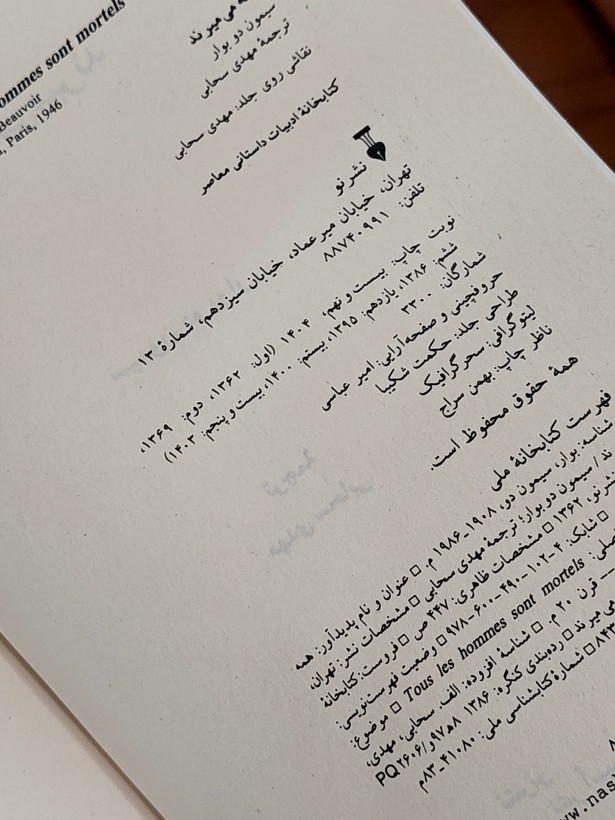 ommes sont mortels
Beauvoir
, Paris, 1946
ه می‌میرند
سیمون دو بوار
ترجمهٔ مهدی سحابی
نقاشی روی جلد: مهدی سحابی
کتابخانهٔ ادبیات داستانی معاصر
نشر نو
تهران، خیابان میرعماد، خیابان سیزدهم، شمارهٔ ۱۳
تلفن: ۸۸۷۴۰۹۹۱
نوبت چاپ: بیست و نهم، ۱۴۰۴ (اول: ۱۳۶۲، دوم: ۱۳۶۹،
ششم: ۱۳۸۶، یازدهم: ۱۳۹۵، بیستم: ۱۴۰۰، بیست و پنجم: ۱۴۰۳)
شمارگان: ۳۳۰۰
حروفچینی و صفحه‌آرایی: امیر عباسی
طراحی جلد: حکمت شکیبا
لیتوگرافی: سحرگرافیک
ناظر چاپ: بهمن سراج
همهٔ حقوق محفوظ است.
فهرست کتابخانهٔ ملی
شناسه: بوار، سیمون دو، ۱۹۰۸_۱۹۸۶ م. □ عنوان و نام پدیدآور: همه
ند / سیمون دو بوار؛ ترجمهٔ مهدی سحابی □ مشخصات نشر: تهران،
نشر نو، ۱۳۶۲ □ مشخصات ظاهری: ۴۴۷ ص □ فروست: کتابخانهٔ
□ شابک: ۴-۱۰۲-۴۹۰-۶۰۰-۹۷۸ □ وضعیت فهرست‌نویسی:
صلی: Tous les hommes sont mortels □ موضوع:
— قرن ۲۰ م. □ شناسهٔ افزوده: الف. سحابی، مهدی،
می‌میرند □ رده‌بندی کنگره: ۱۳۸۶ ۸ھ۹۷و/PQ۲۶۰۶
۸۴۳ □ شمارهٔ کتابشناسی ملی: ۴۱۰۸۰-۸۳م
ww.nas